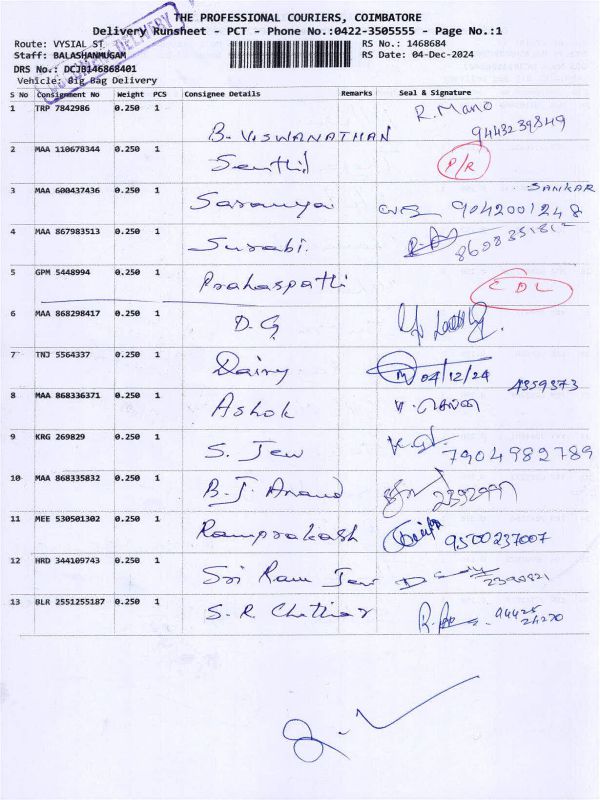 THE PROFESSIONAL COURIERS, COIMBATORE
Delivery Runsheet - PCT - Phone No.:0422-3505555 - Page No.:1
Route: VYSIAL ST
Staff: BALASHANMUGAM
RS No.: 1468684
RS Date: 04-Dec-2024
DRS No.: DCJB146868401
Vehicle: Big Bag Delivery
DELIVERY
S No Consignment No Weight PCS Consignee Details Remarks Seal & Signature
1 TRP 7842986 0.250 1 B. VISWANATHAN R. Mano 9443239849
2 MAA 110678344 0.250 1 Senthil P/R
3 MAA 600437436 0.250 1 Saranya SANKAR 9042001248
4 MAA 867983513 0.250 1 Surabi.
5 GPM 5448994 0.250 1 Prahaspathi CDL
6 MAA 868298417 0.250 1 D. G
7 TNJ 5564337 0.250 1 Dairy 04/12/24 4359373
8 MAA 868336371 0.250 1 Ashok
9 KRG 269829 0.250 1 S. Jew 7904982789
10 MAA 868335832 0.250 1 B. J. Anand
11 MEE 530501302 0.250 1 Ramprakash 9500237007
12 HRD 344109743 0.250 1 Sri Ram Jew 2390821
13 BLR 2551255187 0.250 1 S. R Chettiar 94425 24270